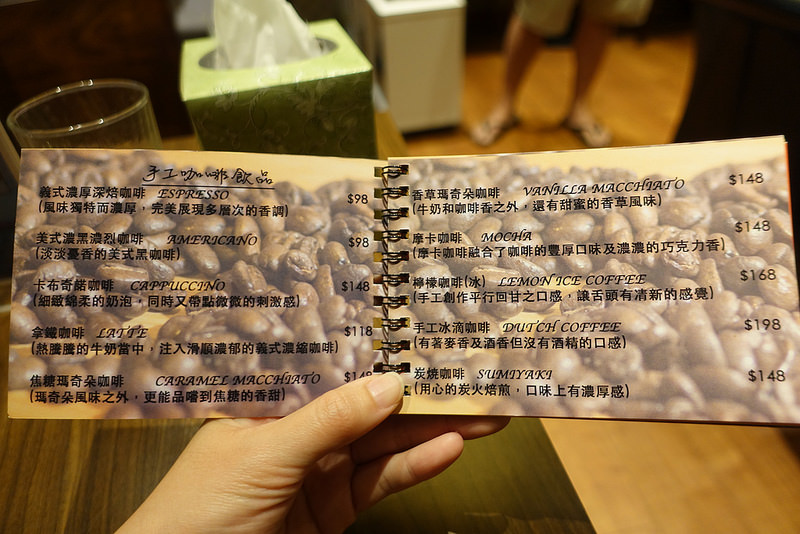 手工咖啡飲品
義式濃厚深焙咖啡 ESPRESSO $98
(風味獨特而濃厚，完美展現多層次的香調)
美式濃黑濃烈咖啡 AMERICANO $98
(淡淡憂香的美式黑咖啡)
卡布奇諾咖啡 CAPPUCCINO $148
(細緻綿柔的奶泡，同時又帶點微微的刺激感)
拿鐵咖啡 LATTE $118
(熱騰騰的牛奶當中，注入滑順濃郁的義式濃縮咖啡)
焦糖瑪奇朵咖啡 CARAMEL MACCHIATO $148
(瑪奇朵風味之外，更能品嚐到焦糖的香甜)
香草瑪奇朵咖啡 VANILLA MACCHIATO $148
(牛奶和咖啡香之外，還有甜蜜的香草風味)
摩卡咖啡 MOCHA $148
(摩卡咖啡融合了咖啡的豐厚口味及濃濃的巧克力香)
檸檬咖啡(冰) LEMON ICE COFFEE $168
(手工創作平行回甘之口感，讓舌頭有清新的感覺)
手工冰滴咖啡 DUTCH COFFEE $198
(有著麥香及酒香但沒有酒精的口感)
炭燒咖啡 SUMIYAKI $148
(用心的炭火焙煎，口味上有濃厚感)